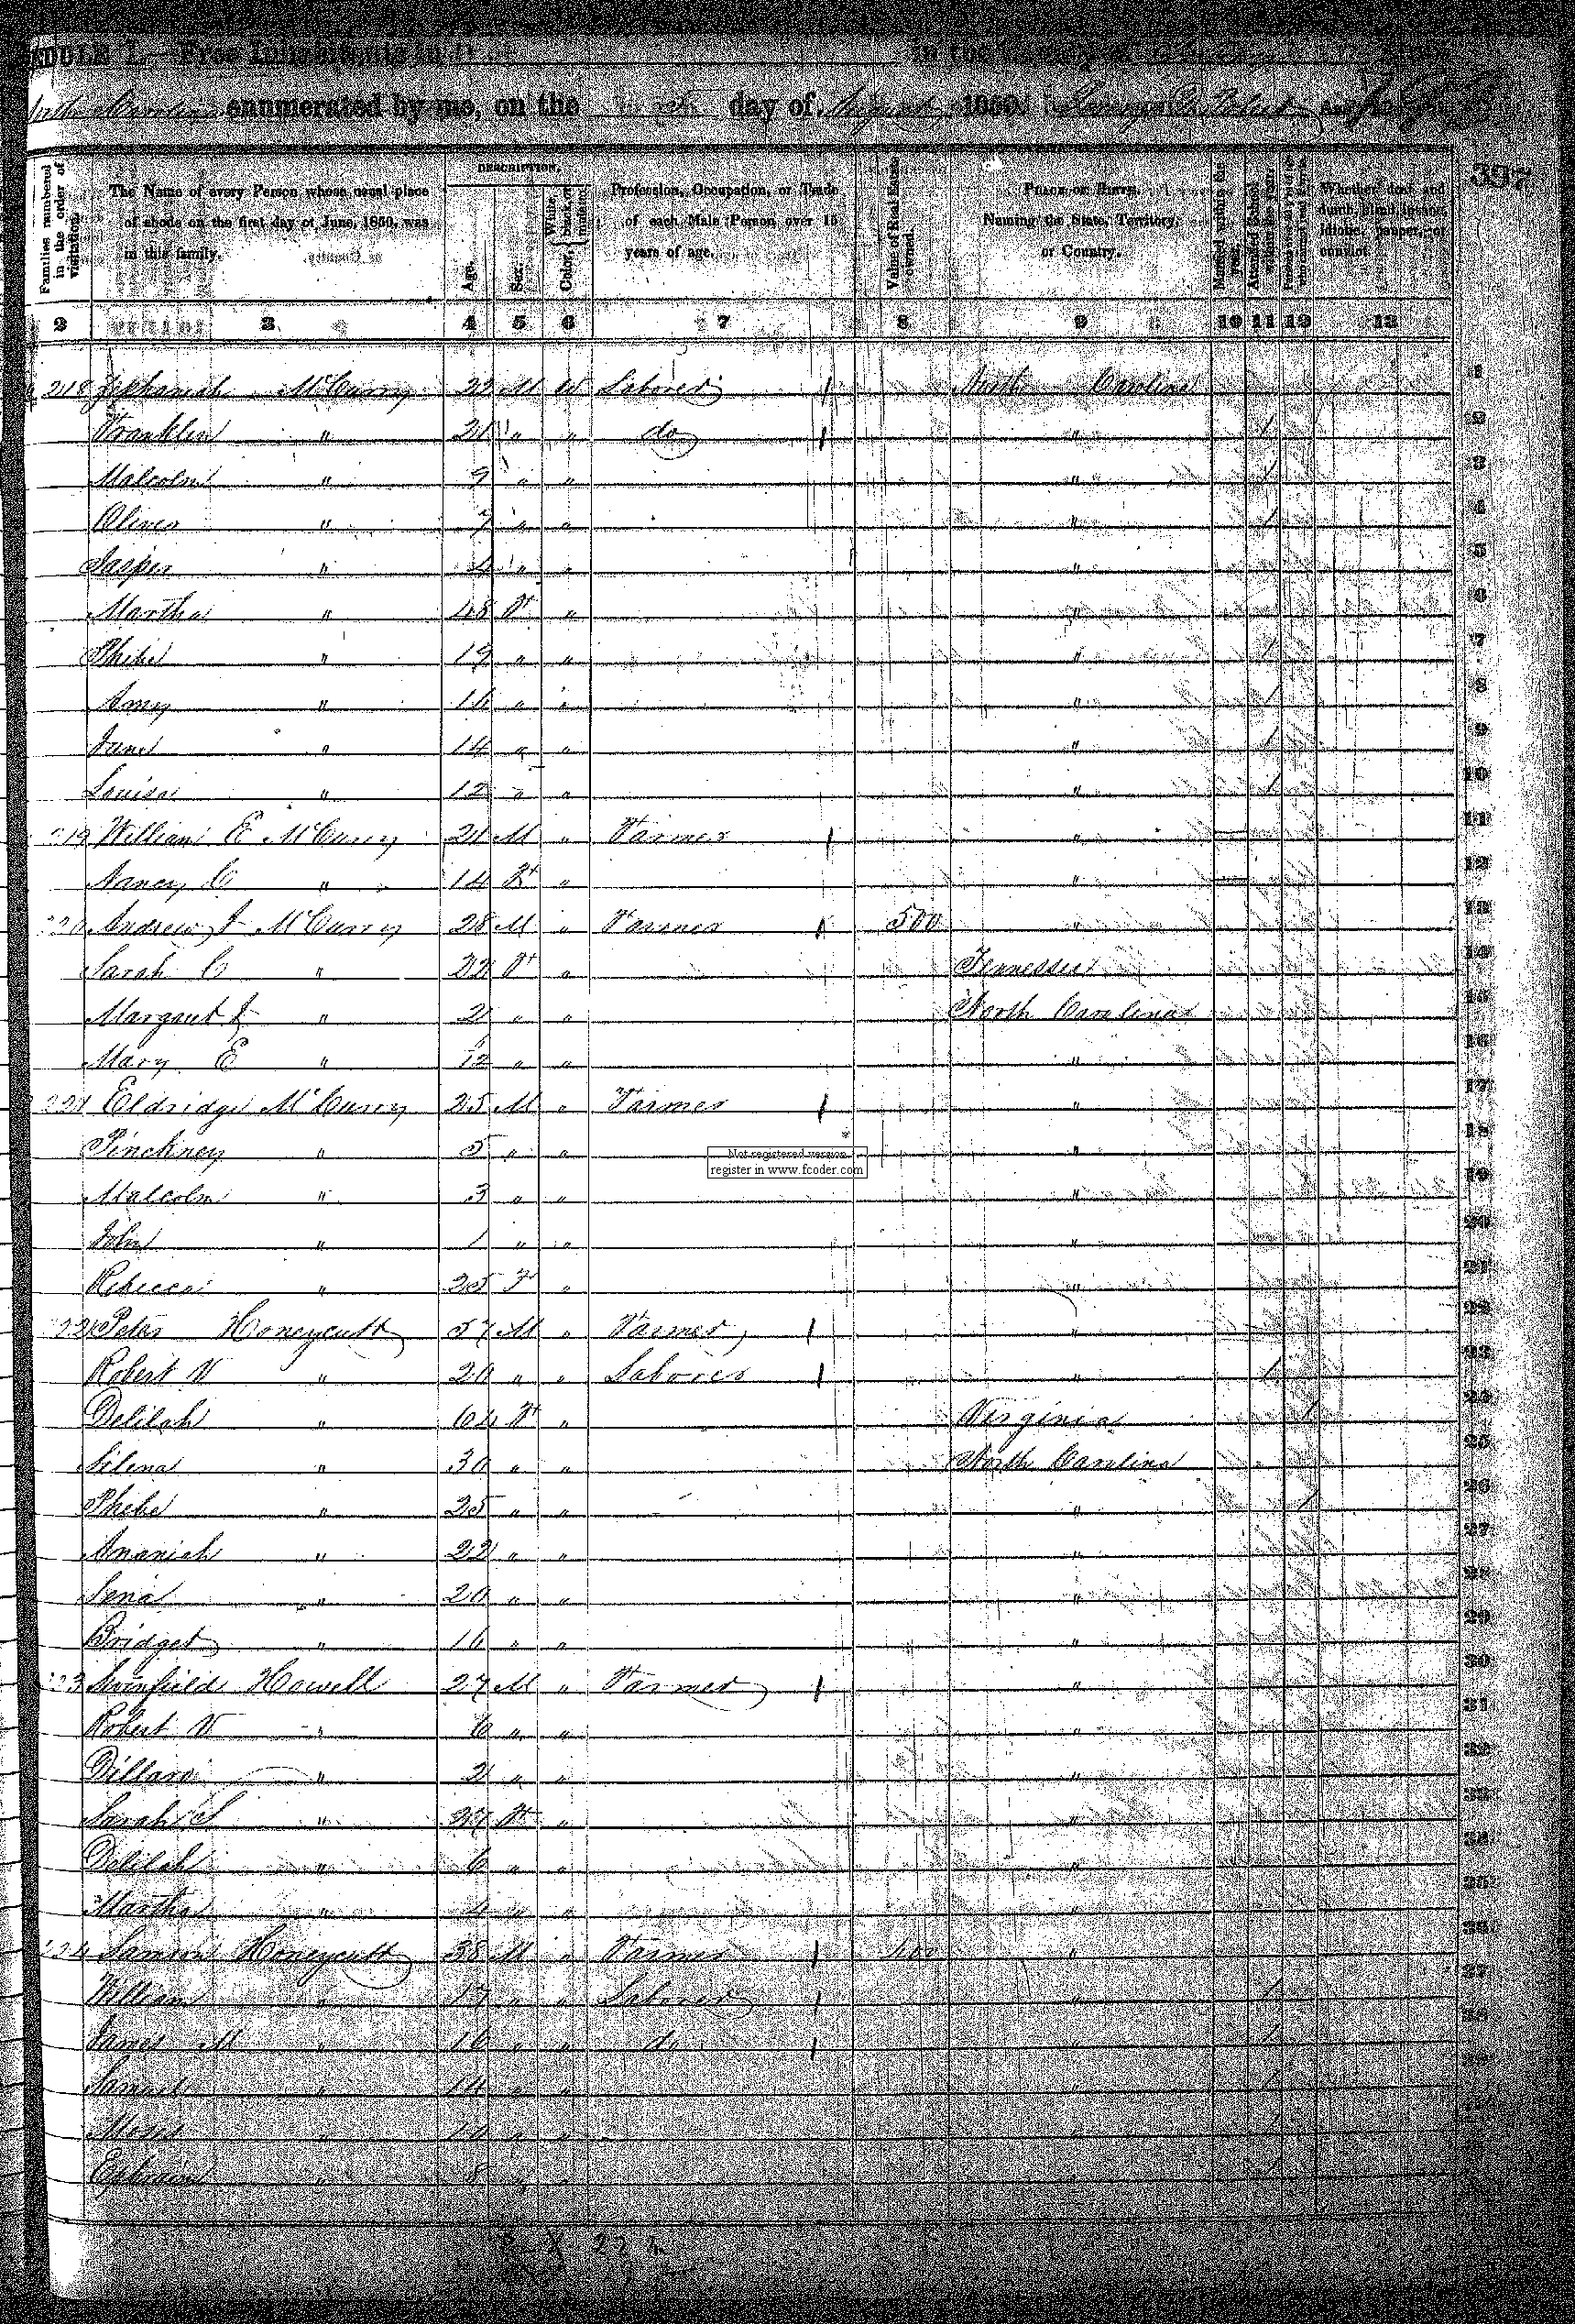 SCHEDULE I.—Free Inhabitants in in the County of
North Carolina enumerated by me, on the day of August 1850.
397
Families numbered in the order of visitation.
The Name of every Person whose usual place of abode on the first day of June, 1850, was in this family.
DESCRIPTION.
Age.
Sex.
Color, { White, black, or mulatto.
Profession, Occupation, or Trade of each Male Person over 15 years of age.
Value of Real Estate owned.
PLACE OF BIRTH. Naming the State, Territory, or Country.
Married within the year.
Attended School within the year.
Whether deaf and dumb, blind, insane, idiotic, pauper, or convict.
2 3 4 5 6 7 8 9 10 11 12 13
218 Zephaniah McCurry 22 M W Laborer / North Carolina 1
Franklin " 21 " " do / " / 2
Malcolm " 9 " " " / 3
Oliver " 7 " " " / 4
Jasper " 4 " " " 5
Martha " 48 F " " 6
Phebe " 19 " " " / 7
Amy " 16 " " " / 8
Jane " 14 " " " / 9
Louisa " 12 " " " / 10
219 William E McCurry 21 M " Farmer / " 11
Nancy C " 14 F " " 12
220 Andrew J McCurry 28 M " Farmer / 500 " 13
Sarah C " 22 F " Tennessee 14
Margaret J " 2 " " North Carolina 15
Mary E " /12 " " " 16
221 Eldridge McCurry 25 M " Farmer / " 17
Pinckney " 5 " " " 18
Not registered version
register in www.fcoder.com
Malcolm " 3 " " " 19
John " 1 " " " 20
Rebecca " 25 F " " 21
222 Peter Honeycutt 57 M " Farmer / " 22
Robert V " 20 " " Laborer / " / 23
Delilah " 64 F " Virginia / 24
Selena " 30 " " North Carolina 25
Phebe " 25 " " " / 26
Ananiah " 22 " " " 27
Sena " 20 " " " 28
Bridget " 16 " " " 29
223 Swinfield Howell 27 M " Farmer / " 30
Robert V " 6 " " 31
Dillard " 2 " " " 32
Sarah S " 27 F " " 33
Delilah " 6 " " " 34
Martha " 4 " " " 35
224 Samson Honeycutt 38 M " Farmer / 400 " 36
William " 17 " " Laborer / " / 37
James M " 16 " " do / " / 38
Samuel " 14 " " " /
Moses " " " "
Ephraim " 8 " "